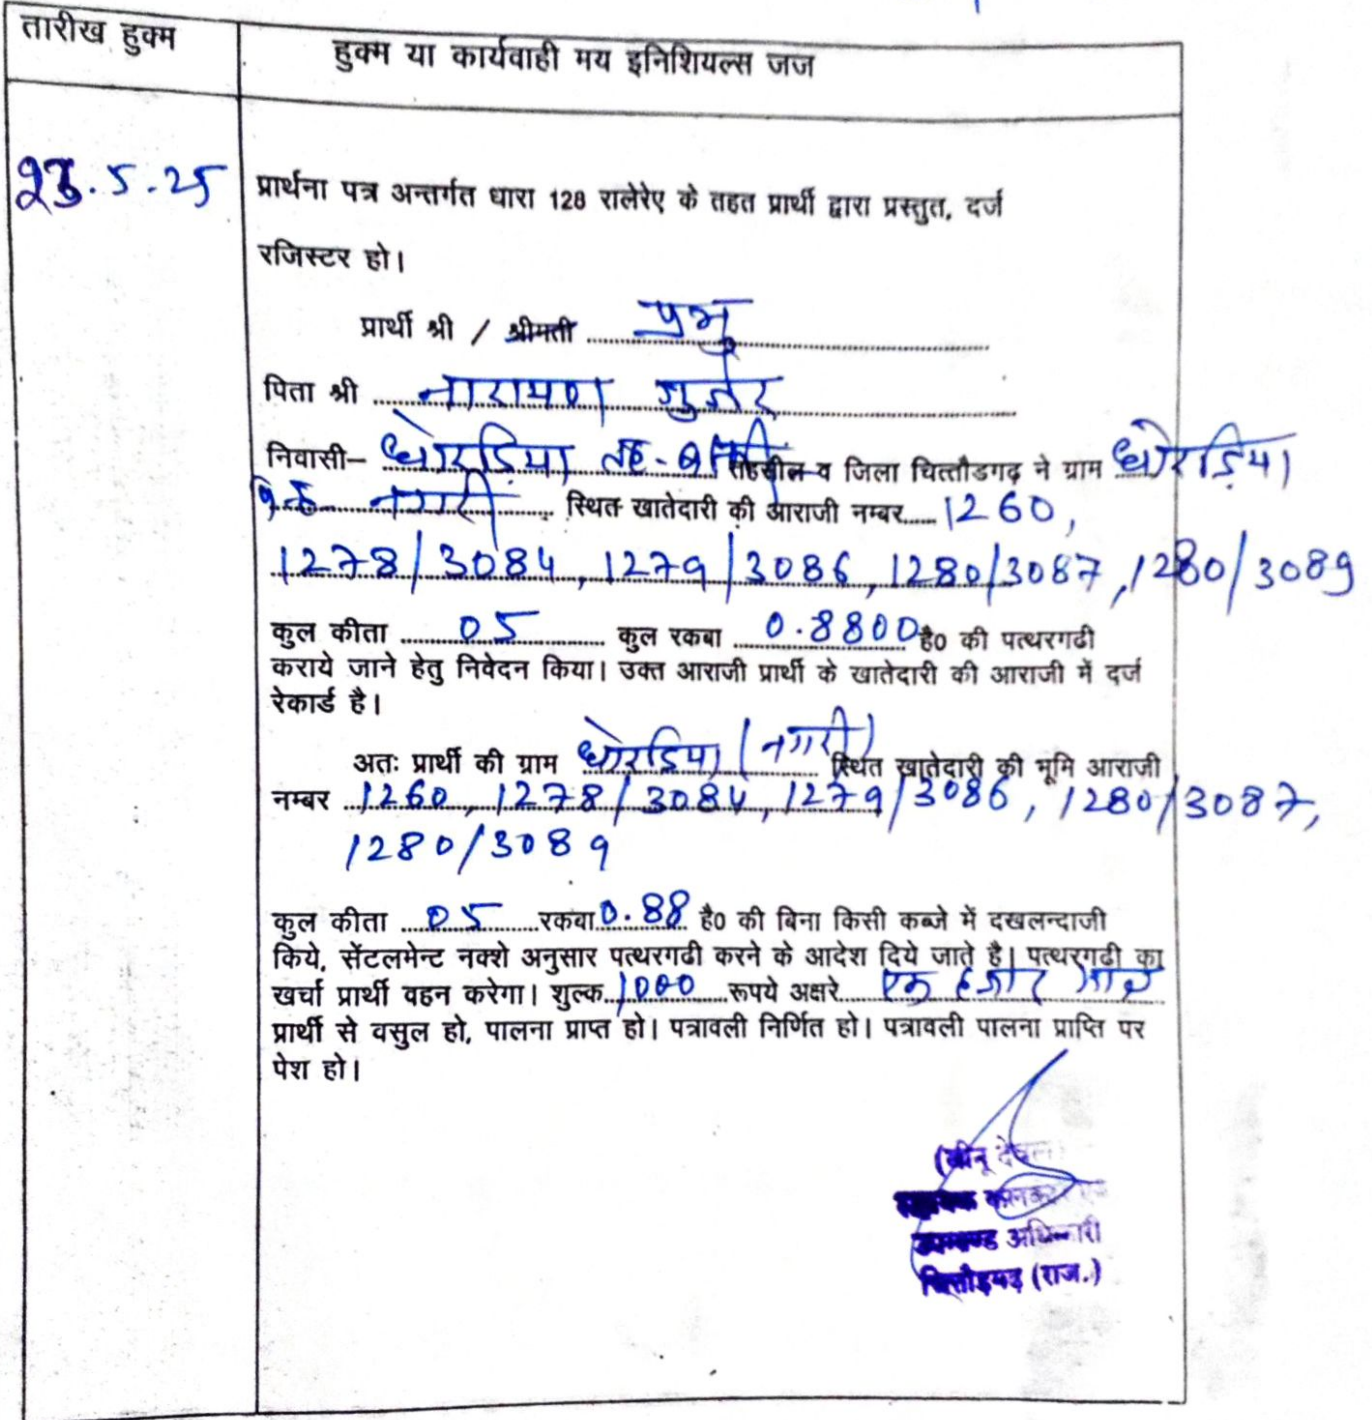 तारीख हुक्म
हुक्म या कार्यवाही मय इनिशियल्स जज
.5.25
प्रार्थना पत्र अन्तर्गत धारा 128 रालेरेए के तहत प्रार्थी द्वारा प्रस्तुत, दर्ज
रजिस्टर हो।
प्रार्थी श्री / श्रीमती प्रभु
पिता श्री नारायण गुर्जर
निवासी– धोरडिया तह- तहसील व जिला चित्तौडगढ़ ने ग्राम धोरडिया
नगरी स्थित खातेदारी की आराजी नम्बर 1260,
1278/3084, 1279/3086, 1280/3087, 1280/3089
कुल कीता 05 कुल रकबा 0.8800 है0 की पत्थरगढी
कराये जाने हेतु निवेदन किया। उक्त आराजी प्रार्थी के खातेदारी की आराजी में दर्ज
रेकार्ड है।
अतः प्रार्थी की ग्राम धोरडिया (नगरी) स्थित खातेदारी की भूमि आराजी
नम्बर 1260, 1278/3084, 1279/3086, 1280/3087,
1280/3089
कुल कीता 05 रकबा 0.88 है0 की बिना किसी कब्जे में दखलन्दाजी
किये, सेंटलमेन्ट नक्शे अनुसार पत्थरगढी करने के आदेश दिये जाते है। पत्थरगढी का
खर्चा प्रार्थी वहन करेगा। शुल्क 1000 रूपये अक्षरे एक हजार मात्र
प्रार्थी से वसुल हो, पालना प्राप्त हो। पत्रावली निर्णित हो। पत्रावली पालना प्राप्ति पर
पेश हो।
उपखण्ड अधिकारी
चित्तौड़गढ़ (राज.)